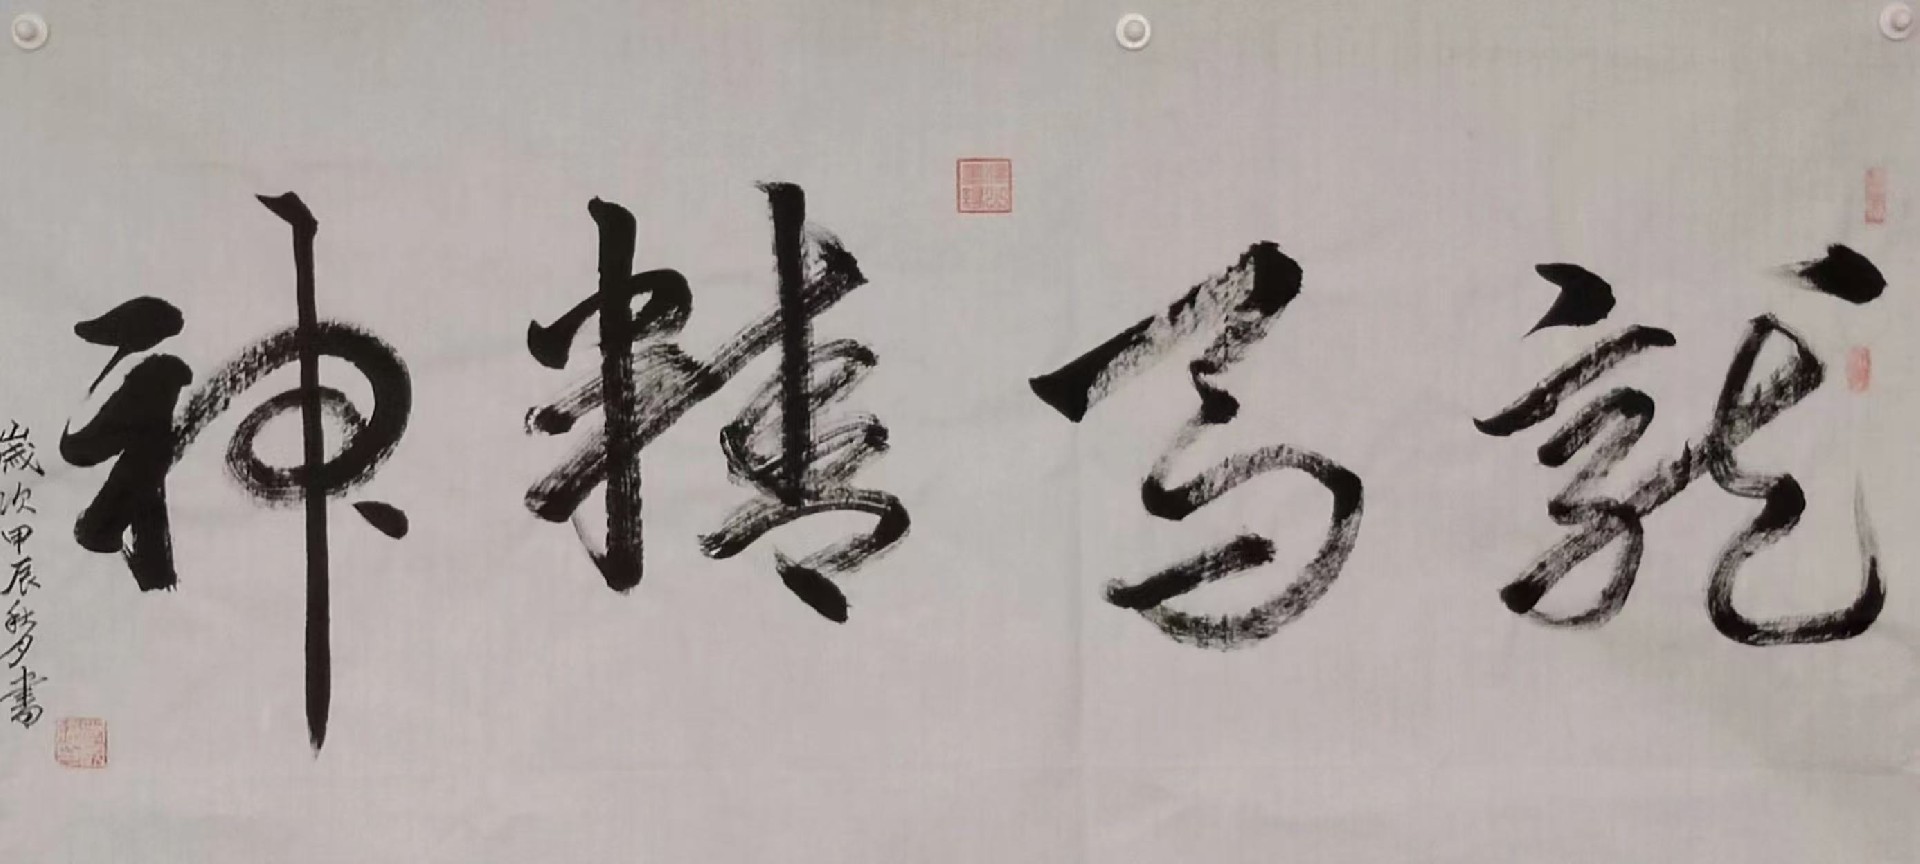 龍馬精神
歲次甲辰秋月書